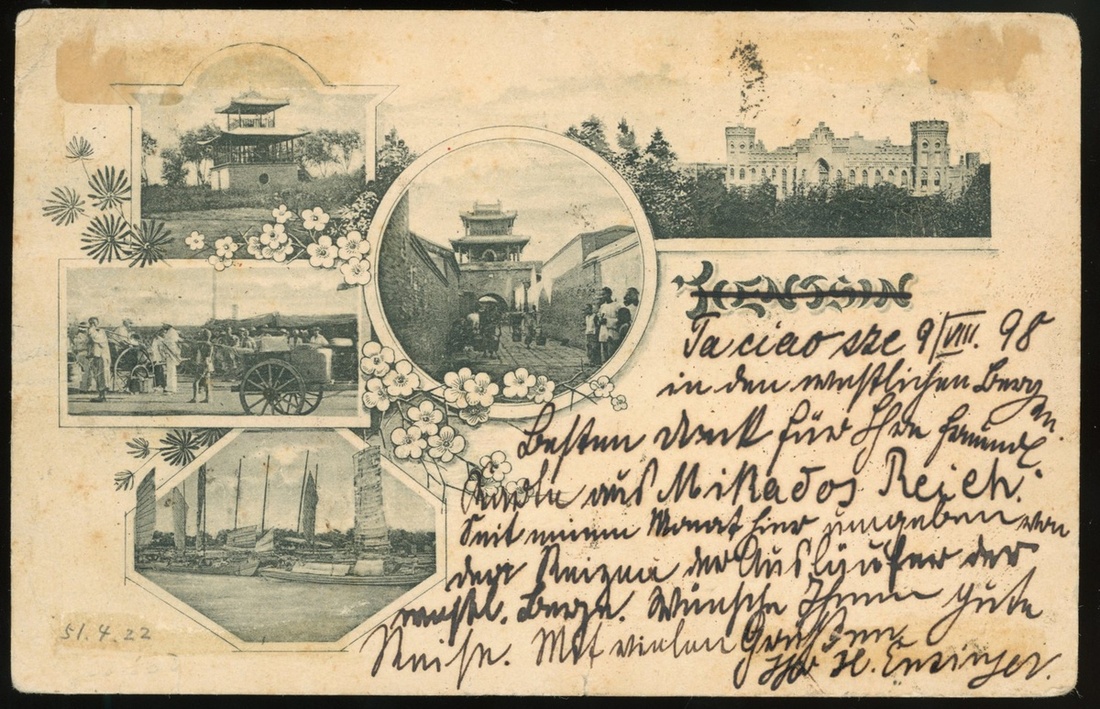 TIENTSIN
Ta ciao sze 9/VIII. 98
in den westlichen Bergen.
Besten Dank für Ihre freundl.
Karte aus Mikados Reich.
Seit einem Monat hier umgeben von
den Reizen der Ausläufer der
westl. Berge. Wünsche Ihnen gute
Reise. Mit vielen Grüßen
Ihr H.
51.4.22